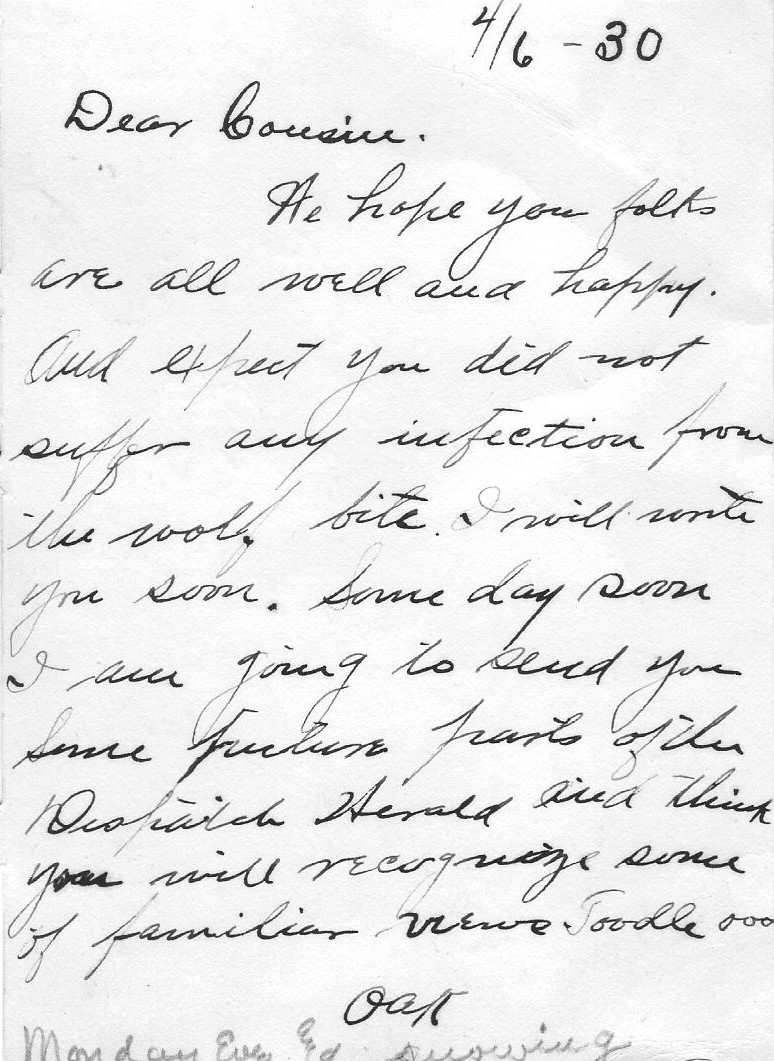 4/6 - 30
Dear Cousin.
We hope you folks
are all well and happy.
And expect you did not
suffer any infection from
the wolf bite. I will write
you soon. Some day soon
I am going to send you
some picture parts of the
Dispatch Herald and think
you will recognize some
of familiar views. Toodle ooo
Oak
Monday Eve Ed. snowing